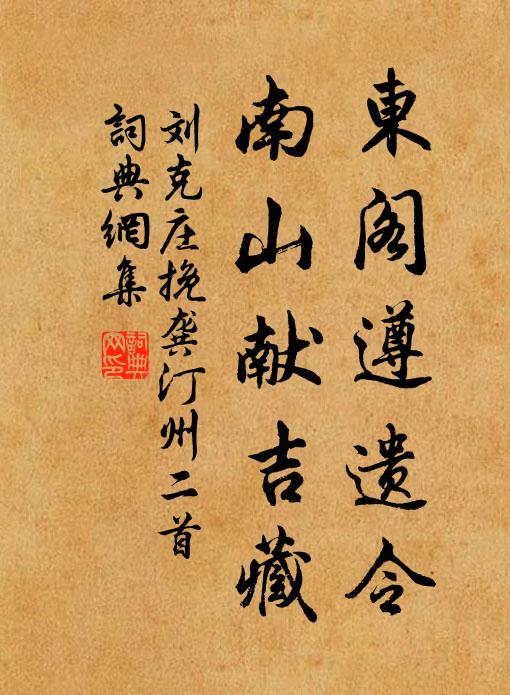 東阁遵遗令
南山献吉藏
刘克庄挽龚汀州二首
詞典網集
詞典
网印